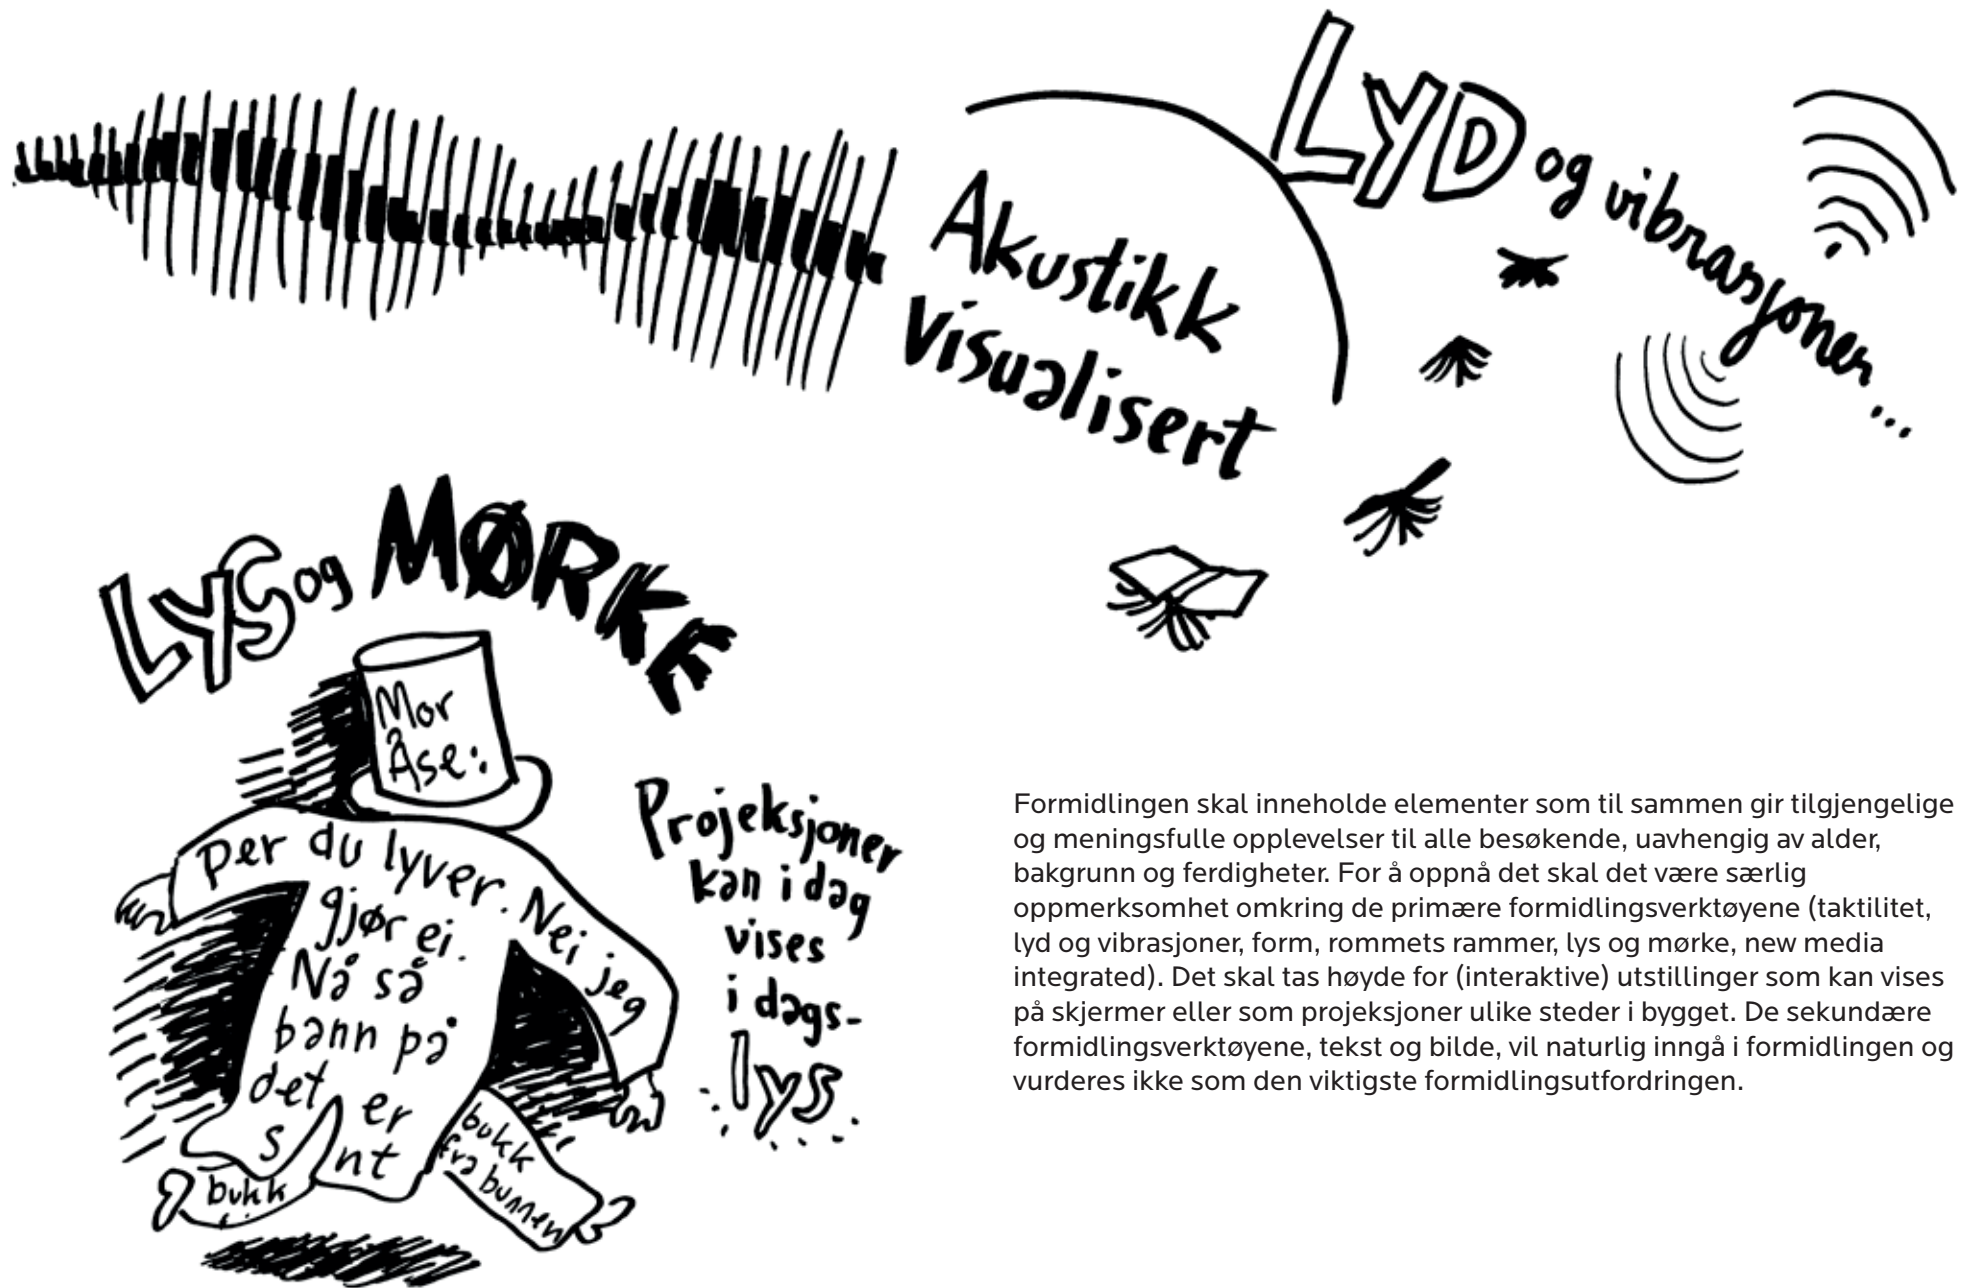 LYD og vibrasjoner...
Akustikk
Visualisert
LYS og MØRKE
Mor
Åse:
Per du lyver. Nei jeg
gjør ei.
Nå så
bann på
det er
s nt
bukk
bukk
fra bunnen
Projeksjoner
kan i dag
vises
i dags-
lys
Formidlingen skal inneholde elementer som til sammen gir tilgjengelige
og meningsfulle opplevelser til alle besøkende, uavhengig av alder,
bakgrunn og ferdigheter. For å oppnå det skal det være særlig
oppmerksomhet omkring de primære formidlingsverktøyene (taktilitet,
lyd og vibrasjoner, form, rommets rammer, lys og mørke, new media
integrated). Det skal tas høyde for (interaktive) utstillinger som kan vises
på skjermer eller som projeksjoner ulike steder i bygget. De sekundære
formidlingsverktøyene, tekst og bilde, vil naturlig inngå i formidlingen og
vurderes ikke som den viktigste formidlingsutfordringen.